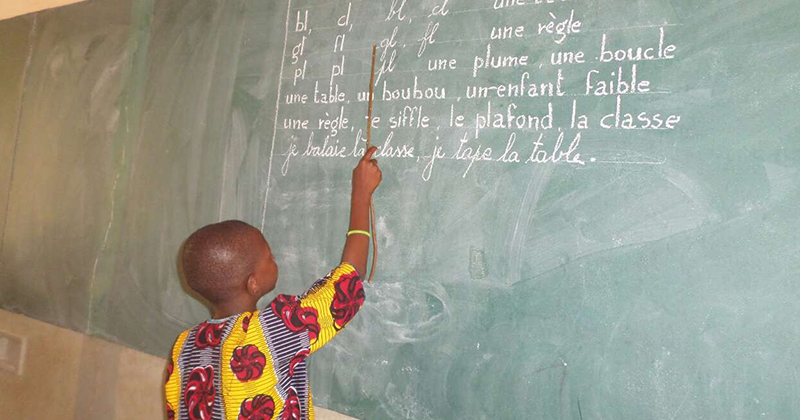 bl, cl, bl, cl une
gl fl gl, fl une règle
pl pl fl une plume, une boucle
une table, un boubou, un enfant faible
une règle, je siffle, le plafond, la classe
je balaie la classe, je tape la table.